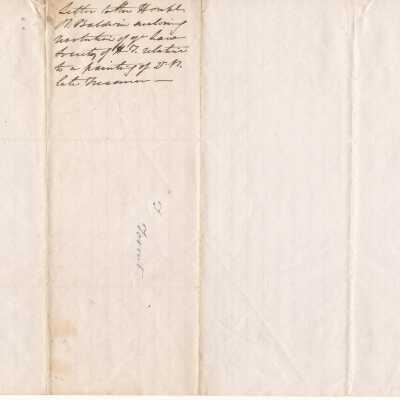 Letter to the Honble
R Baldwin enclosing
resolution of ye Law
Society of H. T. relative
to a painting of
late Treasurer —